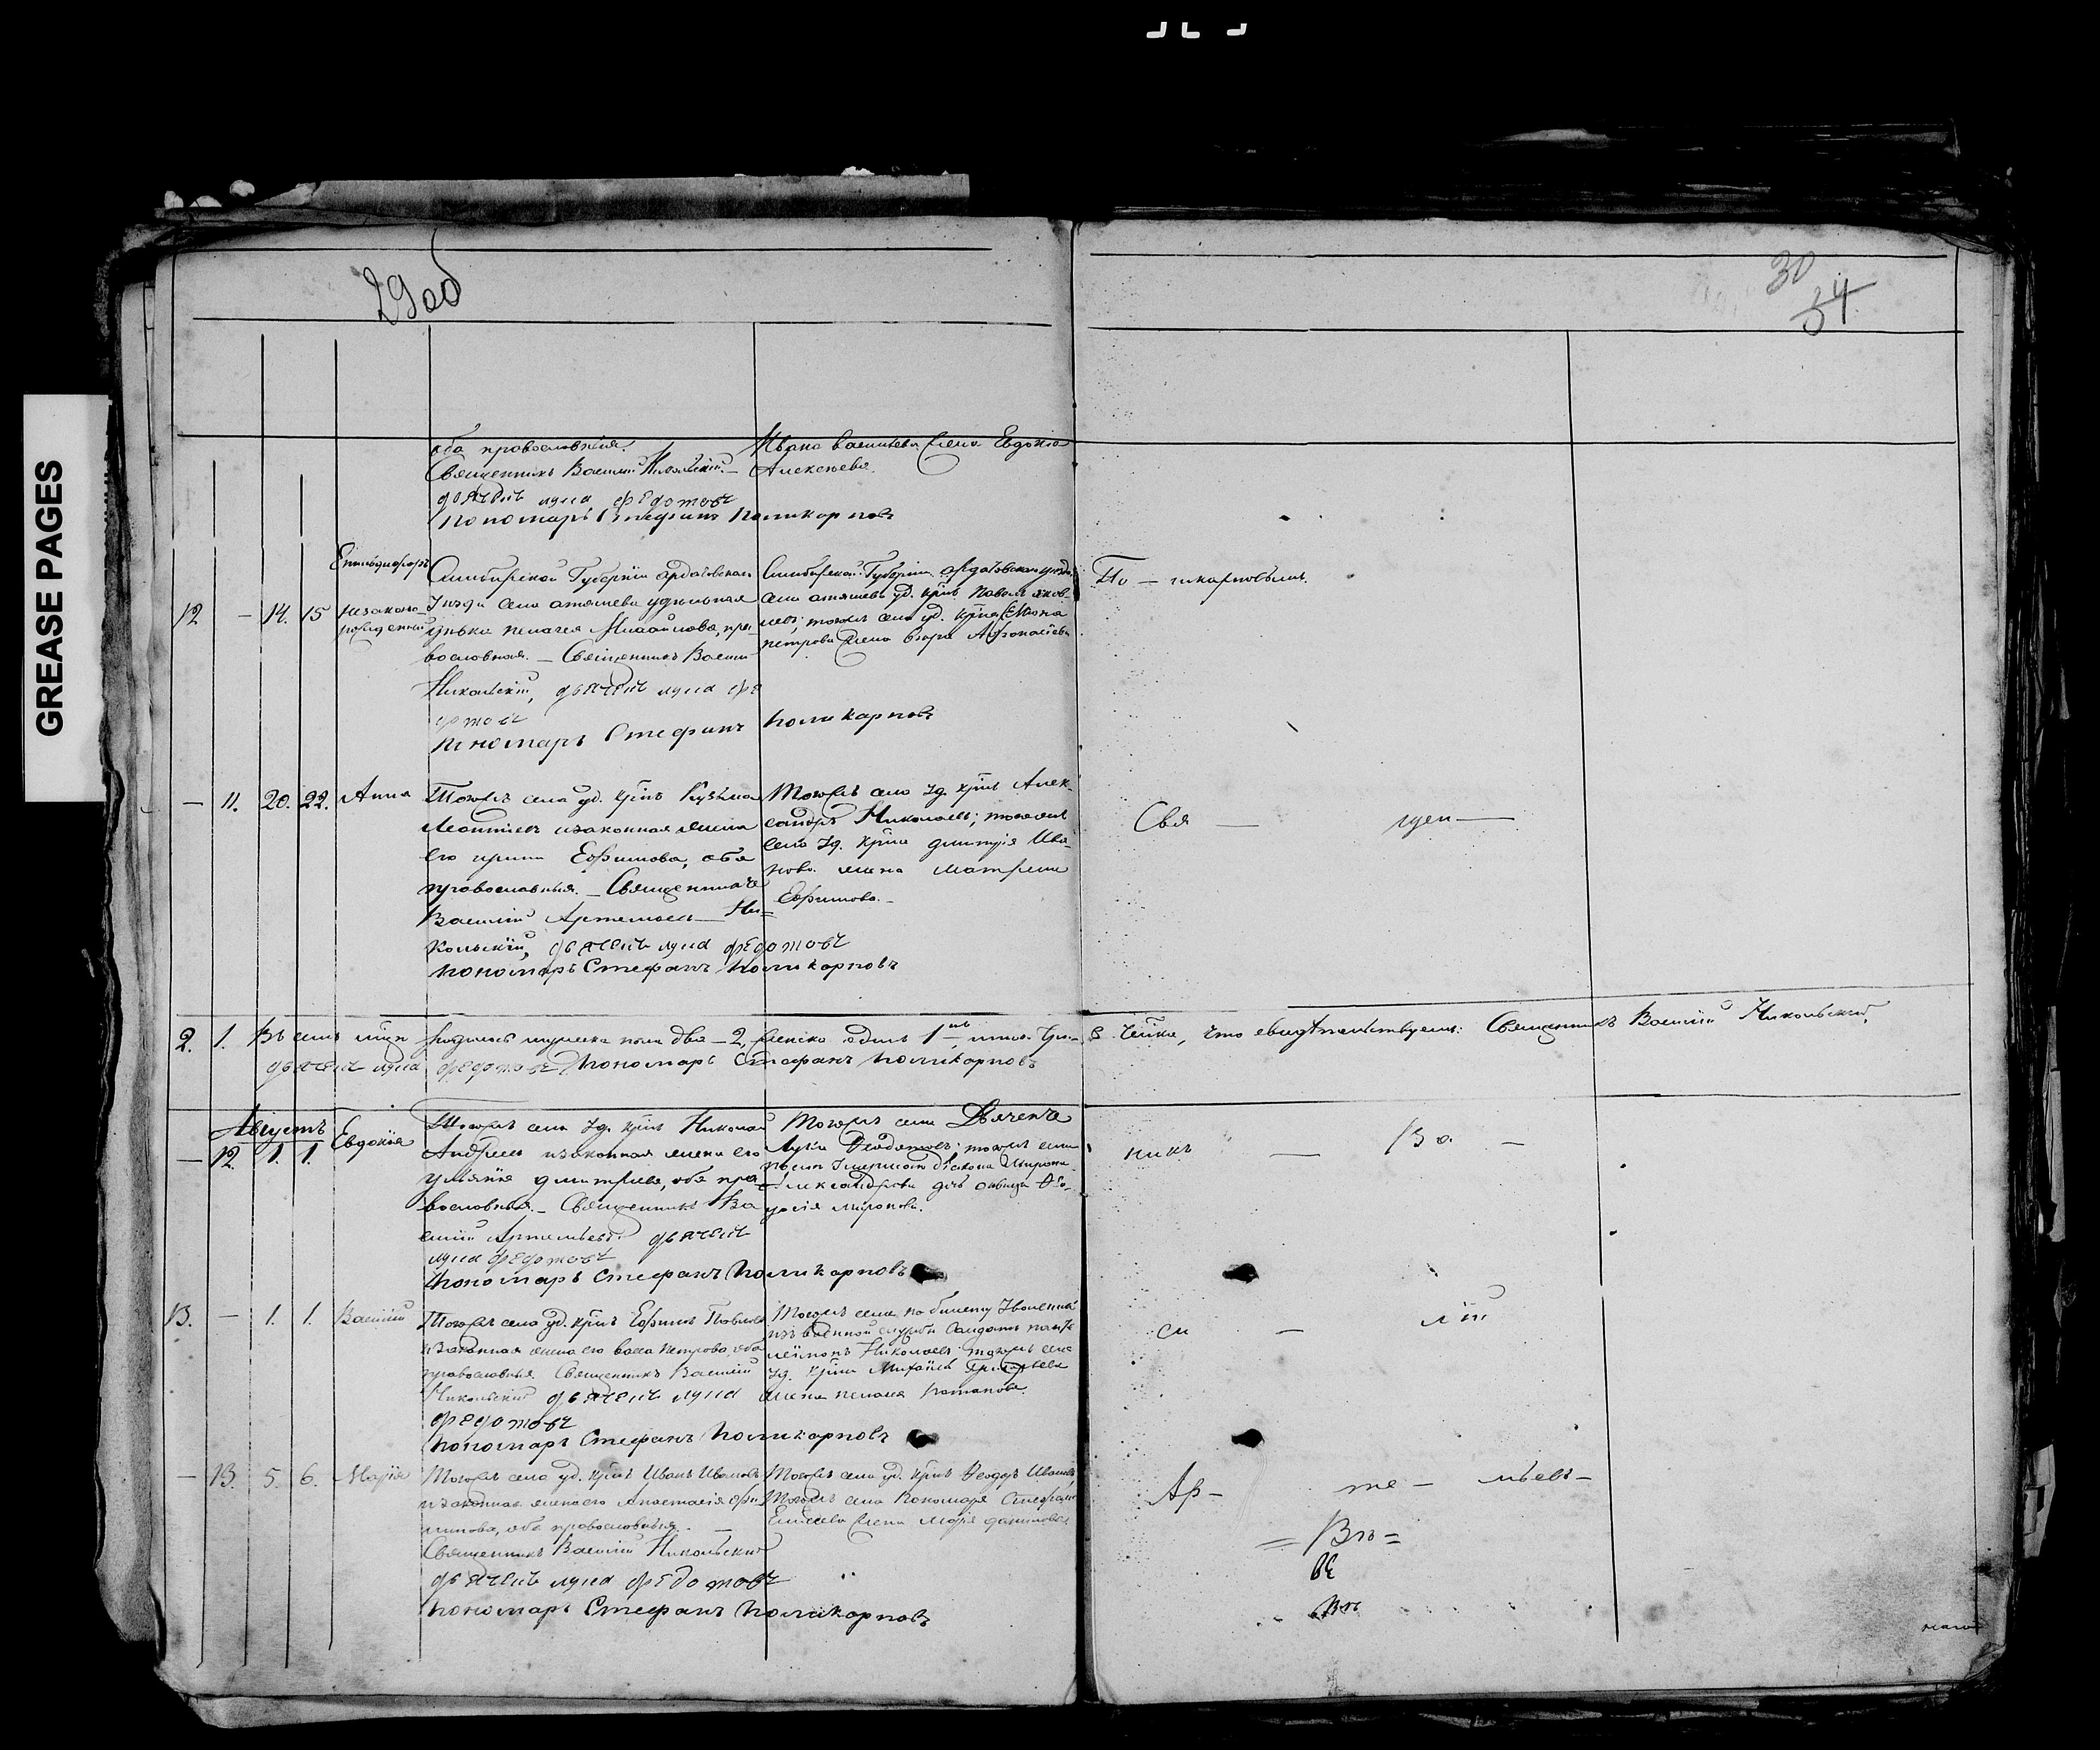 GREASE PAGES
29об
30
34
оба православныя.
Священникъ Василій Никольскій
дьячекъ лука федотовъ
пономарь Стефанъ Поликарповъ
Ивана васильева жена Евдокія
Алексѣева.
12 — 14. 15
незаконо-
рожденный
Симбирской Губерніи ардатовскаго
уѣзда села атяшева удѣльная
православная. — Священникъ Васил
Никольскій, дьячекъ лука фе
дотовъ
пономарь Стефанъ Поликарповъ
Симбирской Губерніи ардатовскаго уѣзда
села атяшева уд. крѣ. Павелъ яков-
левъ; тогожъ села уд. крѣна Симона
петрова жена
По — ликарповымъ.
— 11. 20. 22. Анна
Тогожъ села уд. крѣнъ Кузьма
Леонтьевъ изаконная жена
его ирина Ефимова, оба
православныя. — Священникъ
Василій Артемьевъ Ни=
кольскій, дьячекъ лука федотовъ
пономарь Стефанъ Поликарповъ
Тогожъ села уд. крѣнъ Алек-
сандръ Николаевъ; тогожъ
села уд. крѣна дмитрія Ива-
нова жена матрена
Ефимова. —
Свя — щен —
2. 1. Въ семъ мцѣ родилось мужска пола два — 2, женска одинъ 1, итого три — 3. человѣка, что свидѣтельствуемъ: Священникъ Василій Никольскій,
дьячекъ лука федотовъ Пономарь Стефанъ Поликарповъ
Августъ
— 12. 1. 1. Евдокія
Тогожъ села уд. крѣнъ Николай
Андреевъ изаконная жена его
ульянія дмитріева, оба пра-
вославныя. — Священникъ Ва
силій Артемьевъ дьячекъ
лука федотовъ
пономарь Стефанъ Поликарповъ
Тогожъ села Дьячекъ
Лука Феодотовъ; тогожъ села
умершаго діакона Мирона
Александрова дочь девица Фео-
досія миронова.
никъ — Ва —
13. — 1. 1. Василій
Тогожъ села уд. крѣнъ Ефимъ Павловъ
изаконная жена его васса петрова, оба
православныя Священникъ Василій
Никольскій дьячекъ лука
федотовъ
пономарь Стефанъ Поликарповъ
Тогожъ села по билету Уволенный
изъ военной службы Солдатъ
Николаевъ тогожъ села
уд. крѣна Михаила Григорьева
жена пелагея потапова.
си — лій
— 13. 5. 6. Марія
Тогожъ села уд. крѣнъ Иванъ Ивановъ
изаконная жена его Анастасія фи-
липова, оба православныя. —
Священникъ Василій Никольскій
дьячекъ лука федотовъ
пономарь Стефанъ Поликарповъ
Тогожъ села уд. крѣнъ Феодоръ Ивановъ,
Тогожъ села Пономаря Стефана
Елисеева жена Марія данилова
Ар — те — мьевъ —